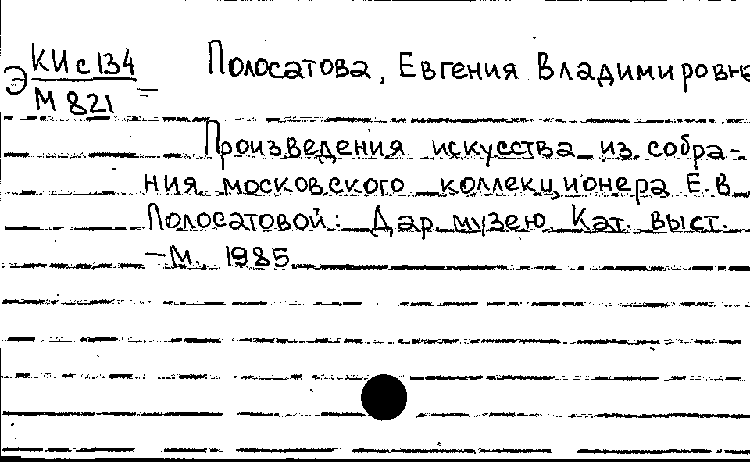 Э КИс134
М 821 =
Полосатова, Евгения Владимировна
Произведения искусства из собра-
ния московского коллекционера Е.В.
Полосатовой: Дар музею. Кат. выст.
—М. 1985